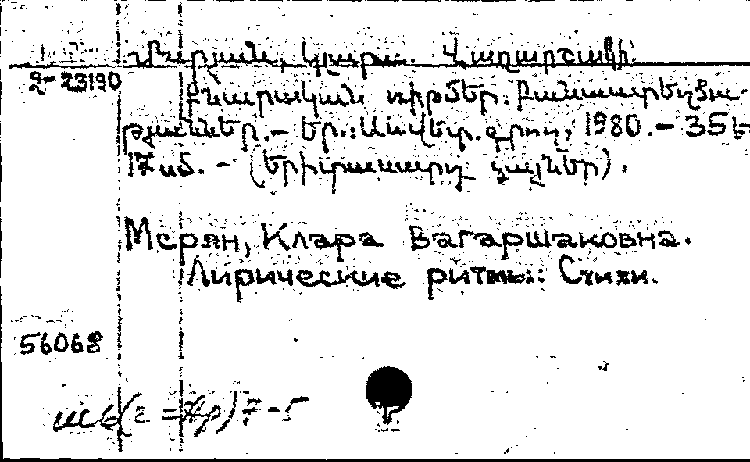 Մերյան, Կլարա Վաղարշակի
2-23190
Քնարական ռիթմեր: Բանաստեղծու-
թյուններ.- Եր.: Սովետ. գրող, 1980.- 35 է
17 սմ. - (Երիտասարդ ձայներ).
Мерян, Клара Вагаршаковна.
Лирические ритмы: Стихи.
56068
7-5